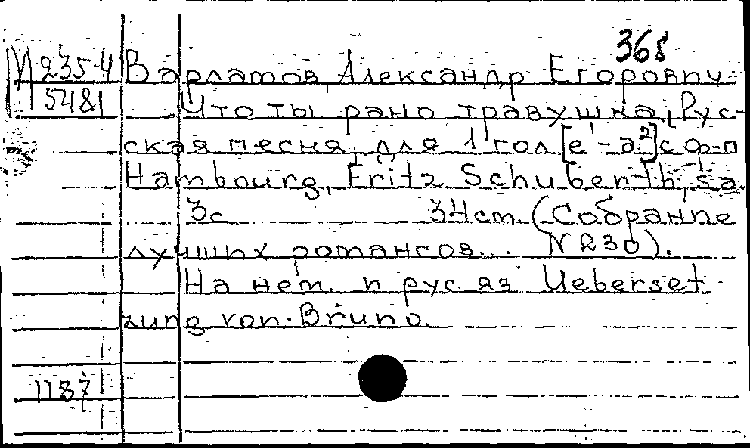 368
М 235-4 Варламов, Александр Егорович
15481 Что ты рано травушка, Рус-
ская песня для 1 гол [e'-a²] с ф-п
Hambourg, Fritz Schuberth, s a
3с 34 cm. (Собрание
лучших романсов... N 230).
На нем. и рус яз Ueberset-
zung von Bruno.
1187